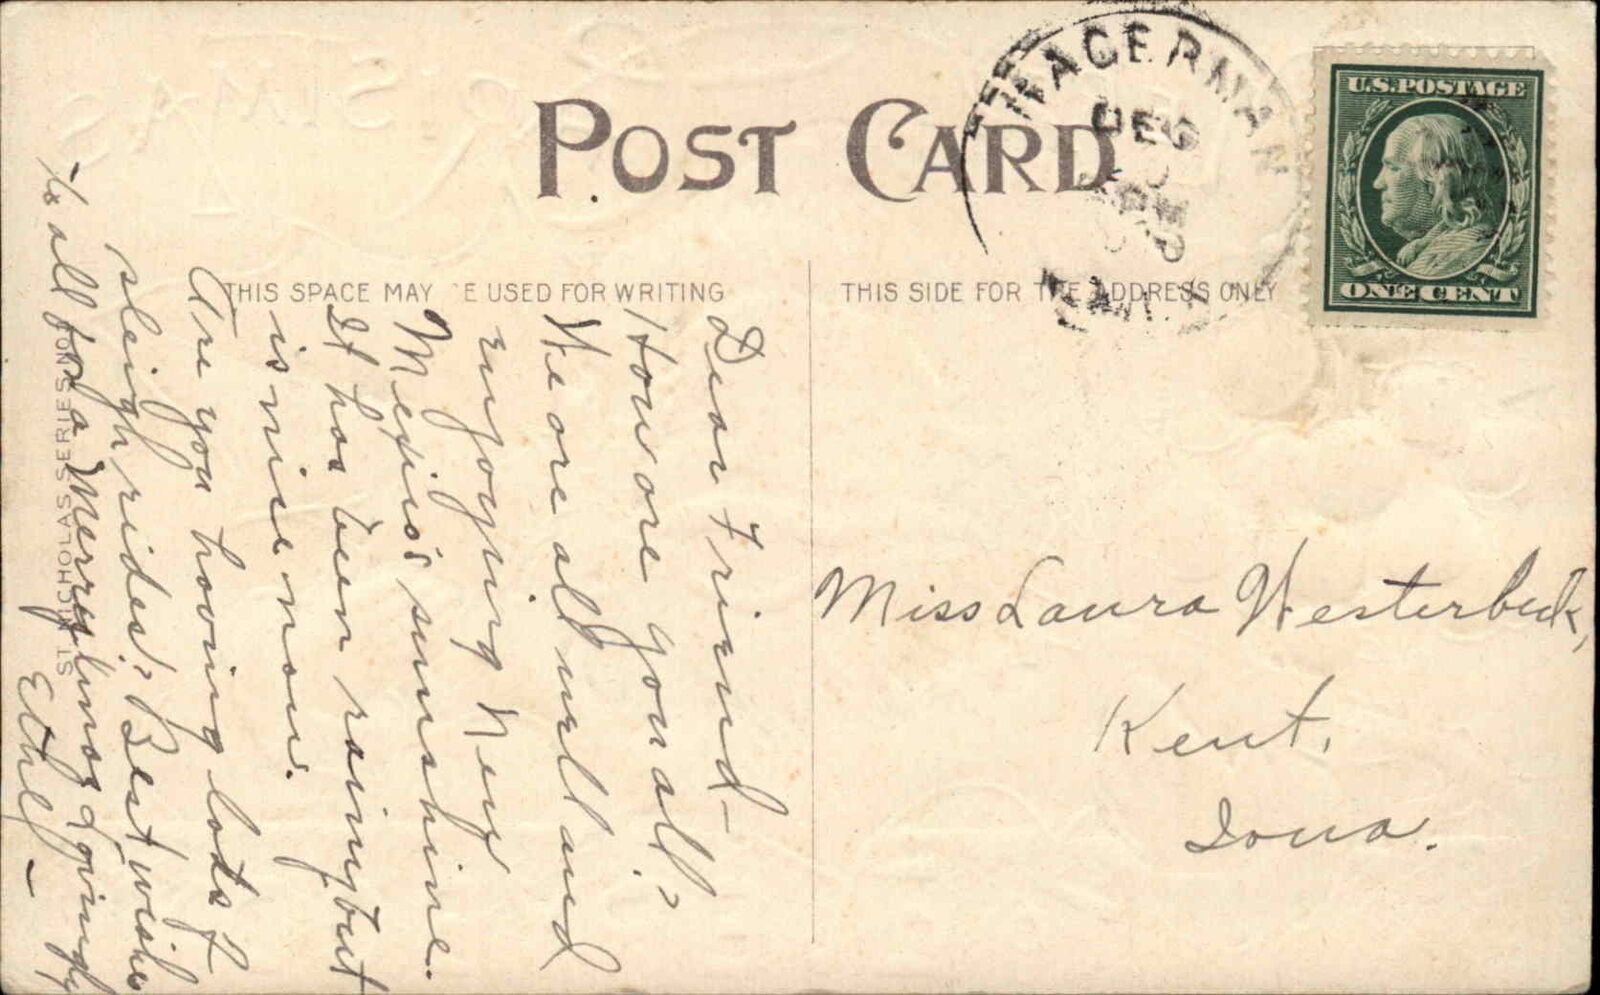 POST CARD
THIS SPACE MAY BE USED FOR WRITING
THIS SIDE FOR THE ADDRESS ONLY
HAGERMAN
DEC
U.S. POSTAGE
ONE CENT
Dear Friend—
How are you all?
We are all well and
enjoying New
Mexico's sunshine.
It has been rainy but
is nice now.
Are you having lots of
sleigh rides? Best wishes
to all for a Merry Xmas Lovingly,
Ethel—
ST. NICHOLAS SERIES NO.
Miss Laura Westerbeck,
Kent,
Iowa.